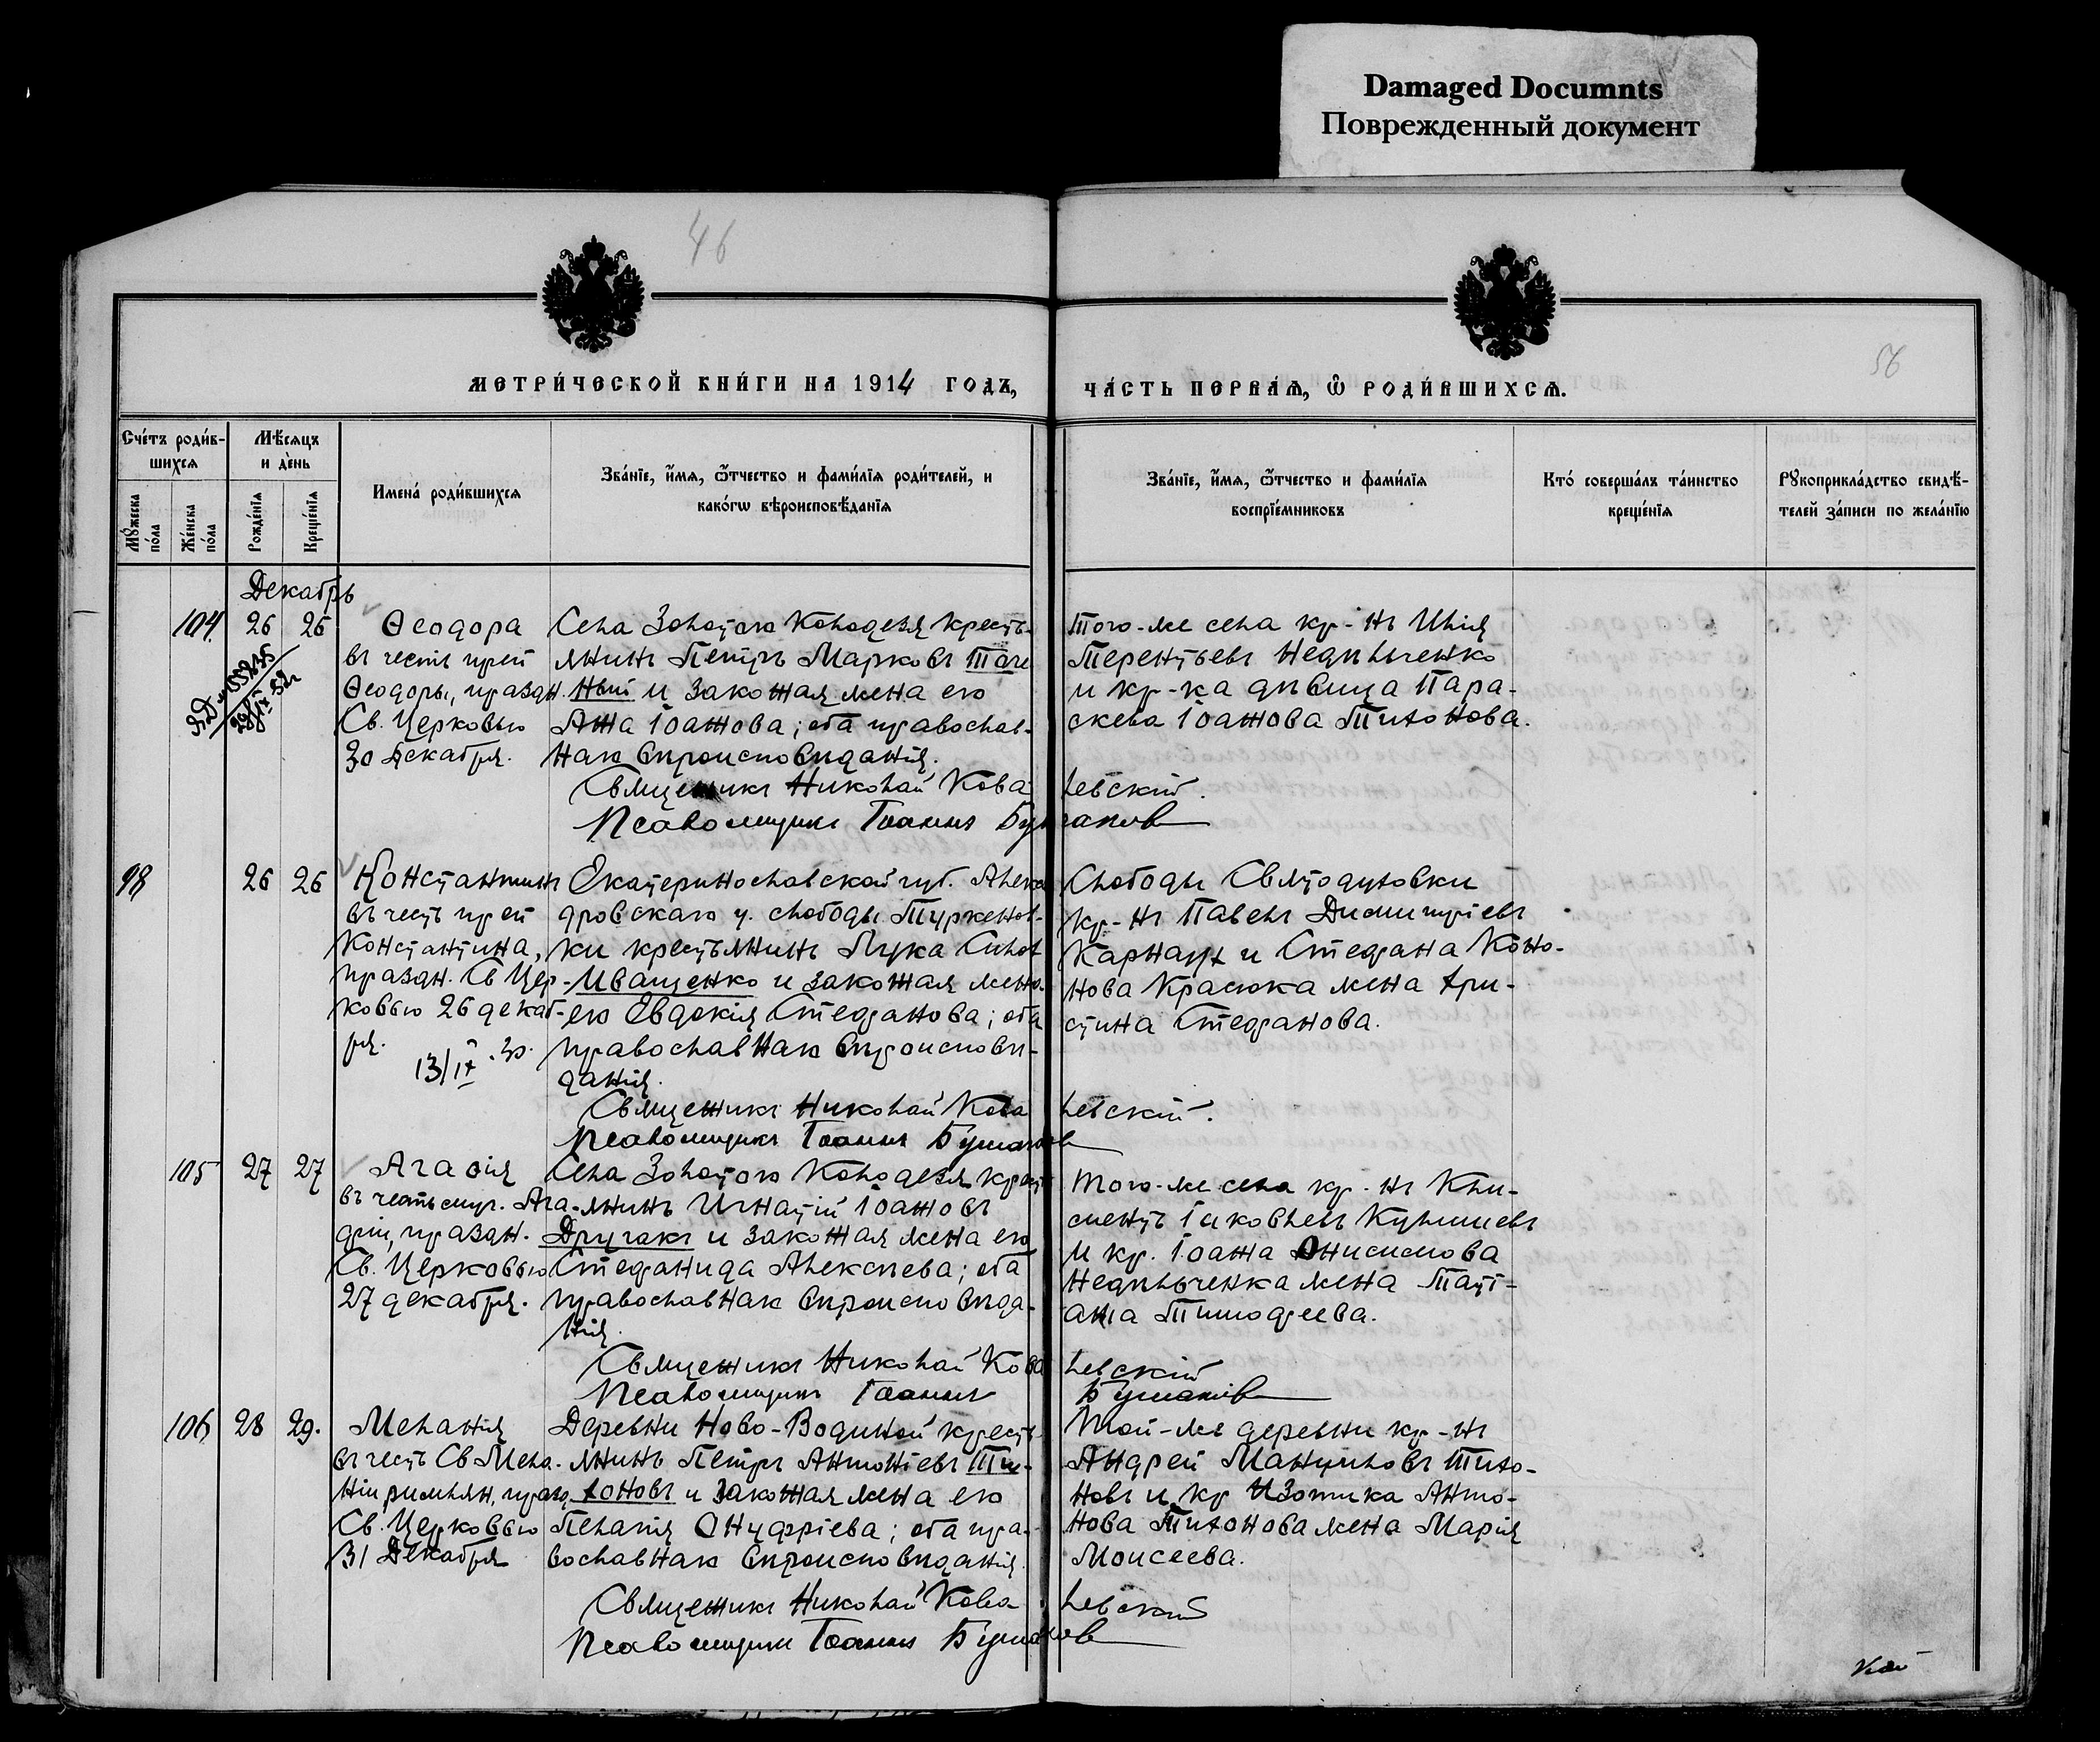 Damaged Documnts
Поврежденный документ
46
56
МЕТРИ́ЧЕСКОЙ КНИ́ГИ НА 1914 ГОДЪ,
ЧА́СТЬ ПЕРВАѦ, Ѿ РОДИ́ВШИХСѦ.
Сче́тъ роди́в-
шихсѧ
Мѣ́сѧцъ
и де́нь
Мꙋ́жеска по́ла
Же́нска по́ла
Рожде́нїѧ
Креще́нїѧ
Имена́ роди́вшихсѧ
Зва́нїе, и҆́мѧ, ѻ҆́тчество и фами́лїѧ роди́телей, и
како́гѡ вѣроисповѣ́данїѧ
Зва́нїе, и҆́мѧ, ѻ҆́тчество и фами́лїѧ
воспрїе́мниковъ
Кто́ соверша́лъ та́инство
креще́нїѧ
Рꙋкоприкла́дство свидѣ́-
телей за́писи по жела́нїю
Декабрь
104. 26 26 Ѳеодора
въ честь преп
Ѳеодоры, праздн.
Св. Церковью
30 Декабря.
Села Золотого Колодезя кресть-
янинъ Петръ Марковъ
ный и законная жена его
Анна Іоаннова; оба православ-
наго вѣроисповѣданія.
Того-же села кр-нъ Илія
Терентьевъ Недѣльченко
и кр-ка дѣвица Пара-
скева Іоаннова Тихонова.
Священникъ Николай Ковалевскій.
Псаломщикъ Іоаннъ
98 26 26 Константинъ
въ честь преп
Константина,
праздн. Св Цер-
ковью 26 декаб-
ря.
13/IX
Екатеринославской губ. Алекса
дровскаго у. слободы
ки крестьянинъ Лука
Иващенко и законная жена
его Евдокія Стефанова; оба
православнаго вѣроисповѣ-
данія.
Слободы Святодуховки
кр-нъ Павелъ Димитріевъ
Карнаух и Стефана Коно-
нова Красюка жена Хри-
стина Стефанова.
Священникъ Николай Ковалевскій.
Псаломщикъ Іоаннъ
105 27 27 Агаѳія
въ честь муч. Ага-
ѳіи, праздн.
Св. Церковью
27 декабря.
Села Золотого Колодезя крест
янинъ Игнатій Іоанновъ
Дручакъ и законная жена его
Стефанида Алексѣева; оба
православнаго вѣроисповѣда-
нія.
Того-же села кр-нъ Кли-
ментъ Іаковлевъ
и кр. Іоанна Онисимова
Недѣльченка жена Тати-
ана Тимоѳеева.
Священникъ Николай Ковалевскій
Псаломщикъ Іоаннъ
106 28 29. Меланія
въ честь Св Мела-
ніи римлян, празд
Св. Церковью
31 Декабря
Деревни Ново-Водяной кресть-
янинъ Петръ Антоніевъ Ти-
хоновъ и законная жена его
Пелагія Онуфріева; оба пра-
вославнаго вѣроисповѣданія.
Той-же деревни кр-нъ
Андрей Мануиловъ Тихо-
новъ и кр Изотика Анто-
нова Тихонова жена Марія
Моисеева.
Священникъ Николай Ковалевскій
Псаломщикъ Іоаннъ